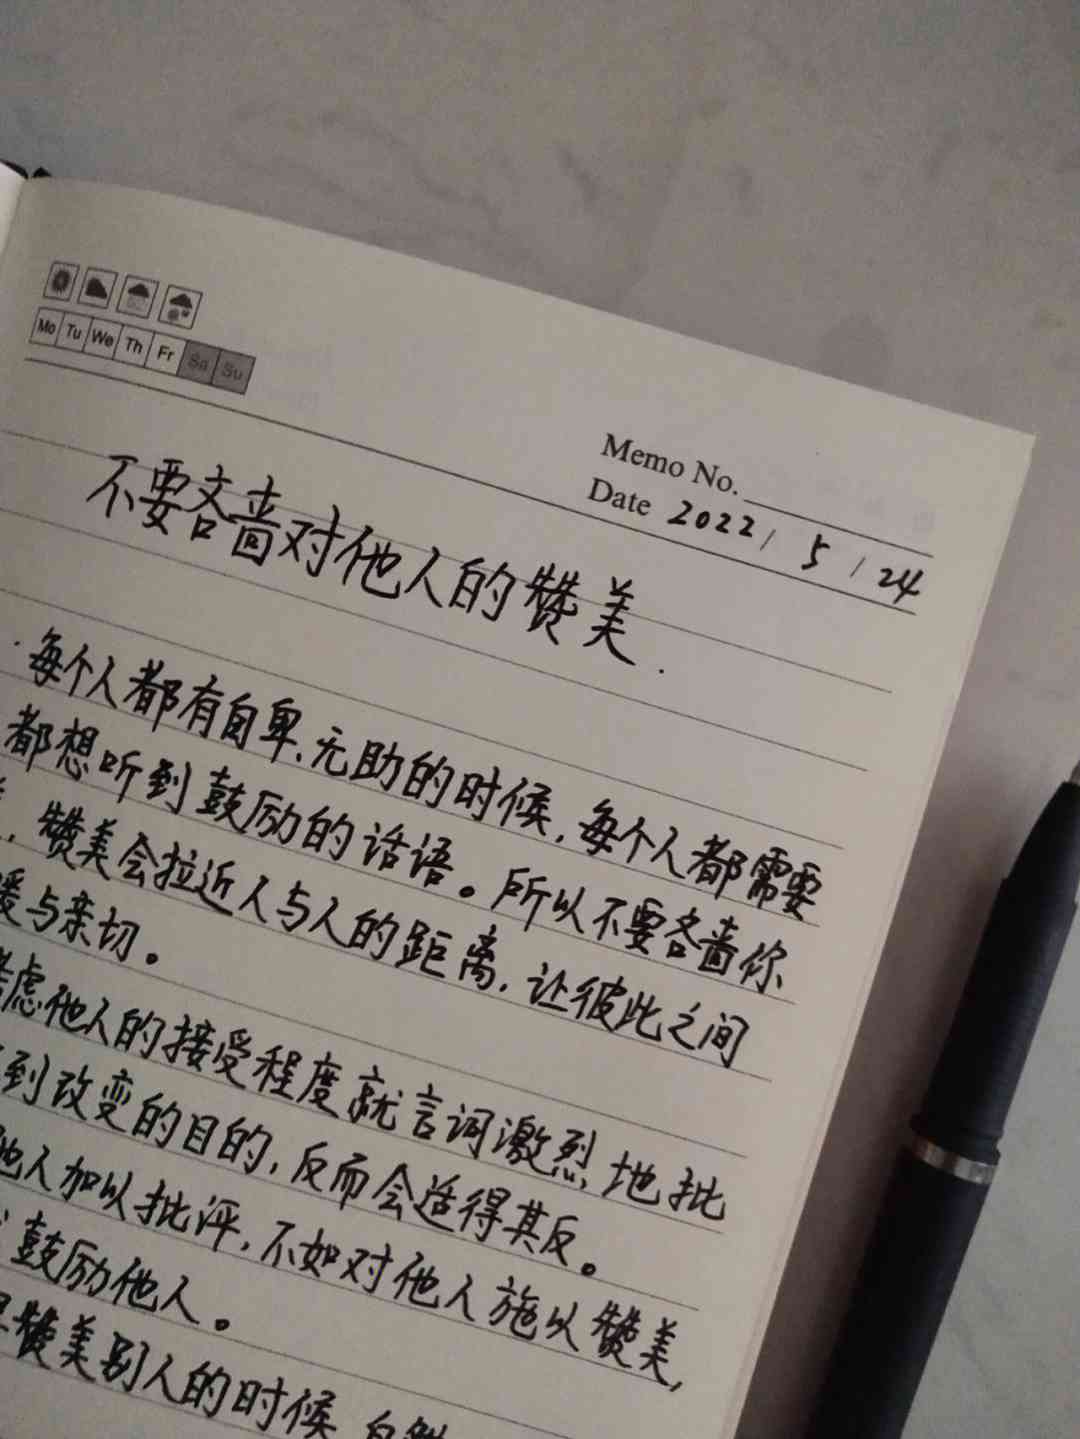 Mo Tu We Th Fr Sa Su
Memo No.
Date 2022 / 5 / 24
不要吝啬对他人的赞美.
·每个人都有自卑、无助的时候,每个人都需要
都想听到鼓励的话语。所以不要吝啬你
,赞美会拉近人与人的距离,让彼此之间
与亲切。
虑他人的接受程度就言词激烈地批
到改变的目的,反而会适得其反。
他人加以批评,不如对他人施以赞美,
鼓励他人。
赞美别人的时候